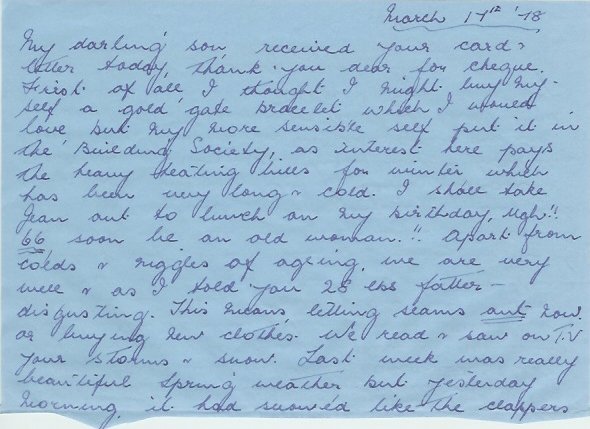 March 17th '78
My darling son, received your card &
letter today, thank-you dear for cheque.
First of all I thought I might buy my-
self a gold gate bracelet which I would
love but my more sensible self put it in
the Building Society, as interest here pays
the heavy heating bills for winter which
has been very long & cold. I shall take
Jean out to lunch on my birthday, Ugh!!
66 soon be an old woman!! Apart from
colds & niggles of ageing, we are very
well & as I told you 28 lbs fatter –
disgusting. This means letting seams out now
or buying new clothes. We read & saw on T.V
your storms & snow. Last week was really
beautiful Spring weather but yesterday
morning it had snowed like the clappers